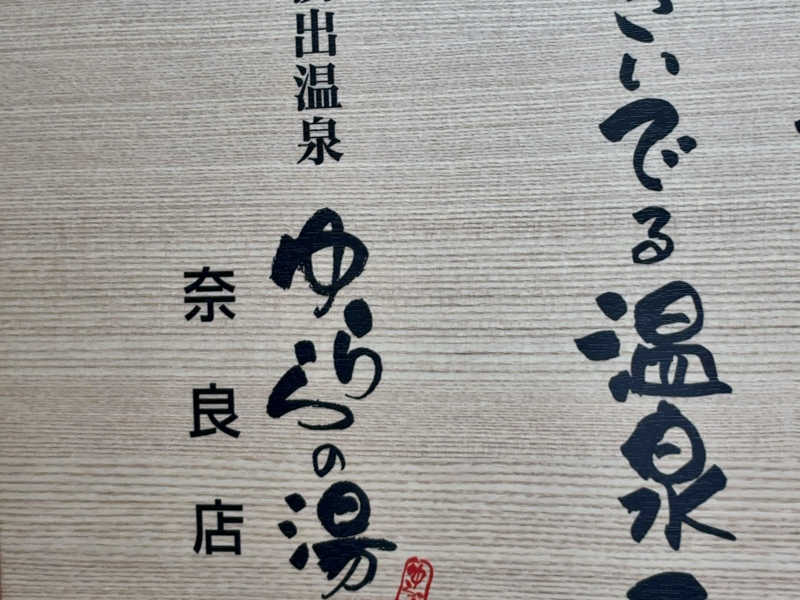 いでる温泉
出温泉
ゆららの湯
奈良店